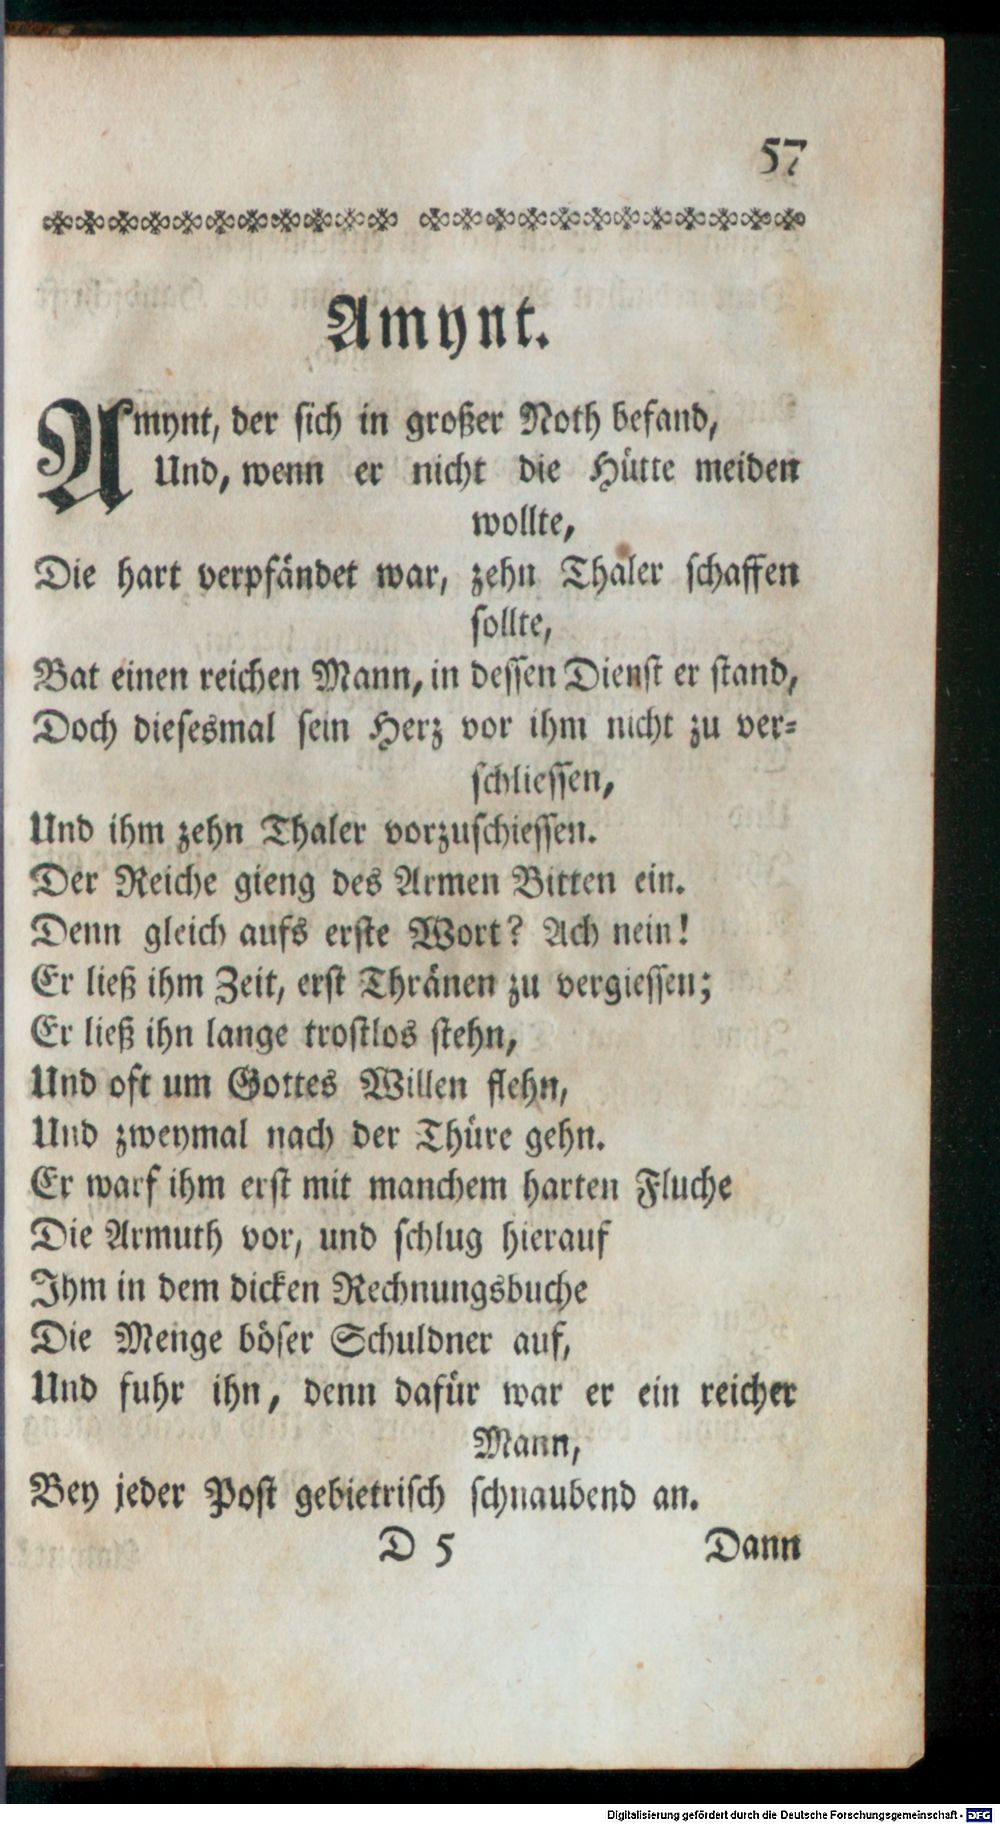 57
Amynt.
Amynt, der sich in großer Noth befand,
Und, wenn er nicht die Hütte meiden
wollte,
Die hart verpfändet war, zehn Thaler schaffen
sollte,
Bat einen reichen Mann, in dessen Dienst er stand,
Doch diesesmal sein Herz vor ihm nicht zu ver-
schliessen,
Und ihm zehn Thaler vorzuschiessen.
Der Reiche gieng des Armen Bitten ein.
Denn gleich aufs erste Wort? Ach nein!
Er ließ ihm Zeit, erst Thränen zu vergiessen;
Er ließ ihn lange trostlos stehn,
Und oft um Gottes Willen flehn,
Und zweymal nach der Thüre gehn.
Er warf ihm erst mit manchem harten Fluche
Die Armuth vor, und schlug hierauf
Ihm in dem dicken Rechnungsbuche
Die Menge böser Schuldner auf,
Und fuhr ihn, denn dafür war er ein reicher
Mann,
Bey jeder Post gebietrisch schnaubend an.
D 5 Dann
Digitalisierung gefördert durch die Deutsche Forschungsgemeinschaft - DFG